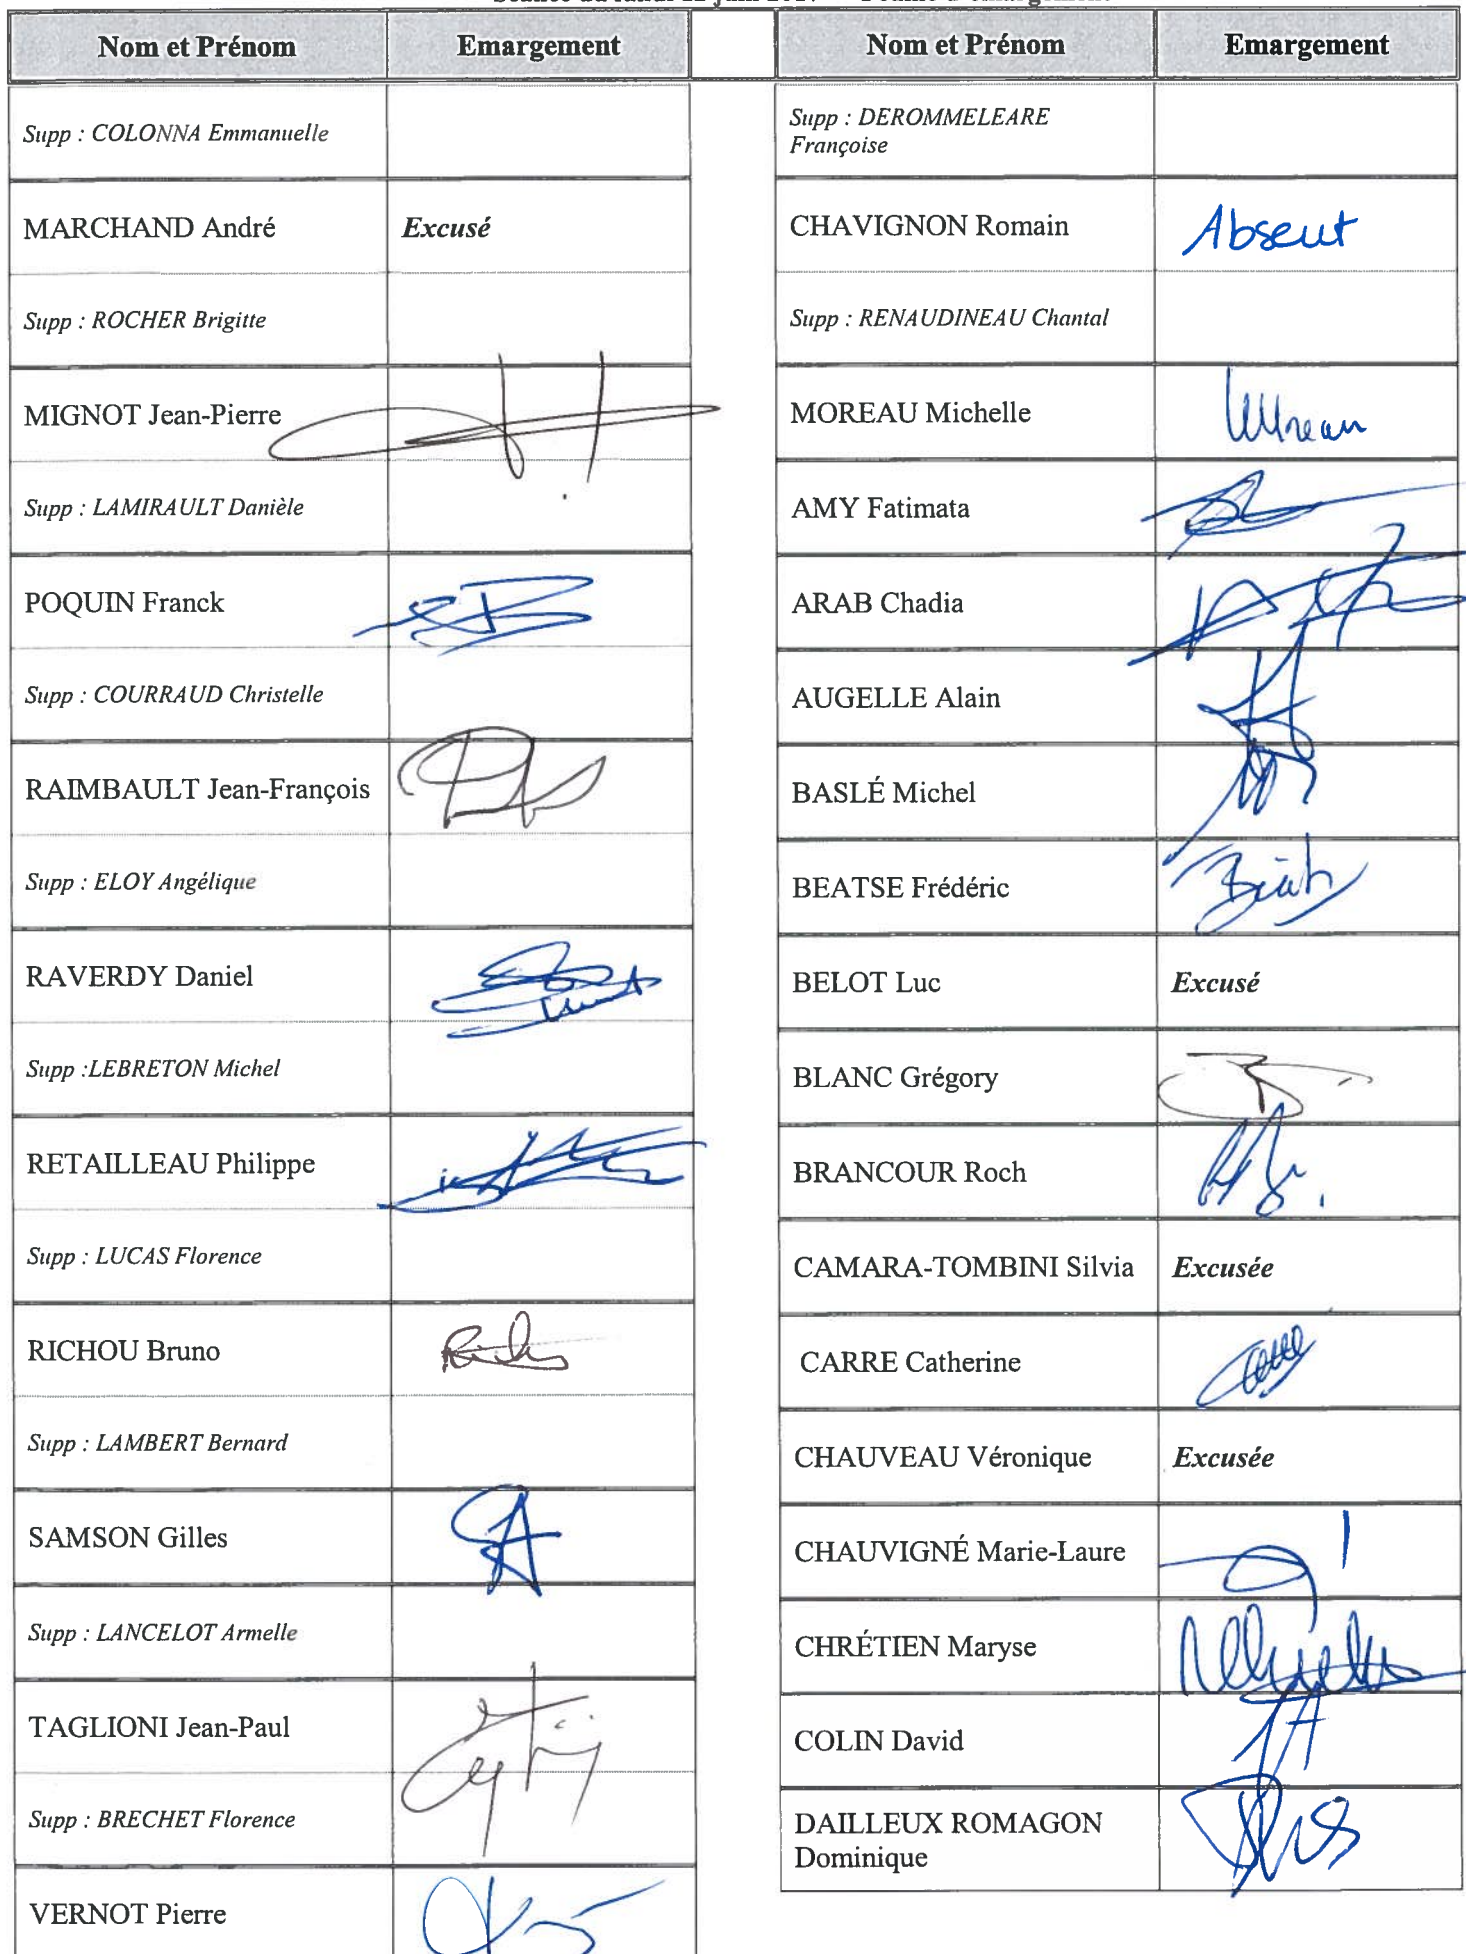 Nom et Prénom Emargement
Supp : COLONNA Emmanuelle
MARCHAND André Excusé
Supp : ROCHER Brigitte
MIGNOT Jean-Pierre
Supp : LAMIRAULT Danièle
POQUIN Franck
Supp : COURRAUD Christelle
RAIMBAULT Jean-François
Supp : ELOY Angélique
RAVERDY Daniel
Supp :LEBRETON Michel
RETAILLEAU Philippe
Supp : LUCAS Florence
RICHOU Bruno
Supp : LAMBERT Bernard
SAMSON Gilles
Supp : LANCELOT Armelle
TAGLIONI Jean-Paul
Supp : BRECHET Florence
VERNOT Pierre
Nom et Prénom Emargement
Supp : DEROMMELEARE
Françoise
CHAVIGNON Romain Absent
Supp : RENAUDINEAU Chantal
MOREAU Michelle
AMY Fatimata
ARAB Chadia
AUGELLE Alain
BASLÉ Michel
BEATSE Frédéric
BELOT Luc Excusé
BLANC Grégory
BRANCOUR Roch
CAMARA-TOMBINI Silvia Excusée
CARRE Catherine
CHAUVEAU Véronique Excusée
CHAUVIGNÉ Marie-Laure
CHRÉTIEN Maryse
COLIN David
DAILLEUX ROMAGON
Dominique